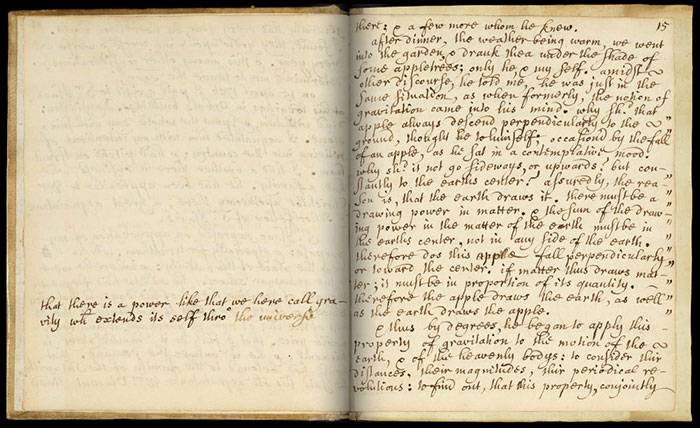 that there is a power like that we here call gra-
vity wh extends its self thro' the universe
there: & a few more whom he knew. 15
after dinner, the weather being warm, we went
into the garden, & drank thea under the shade of
some appletrees; only he, & my self. amidst
other discourse, he told me, he was just in the
same situation, as when formerly, the notion of
gravitation came into his mind. "why sh.d that
apple always descend perpendicularly to the "
ground, thought he to himself: occasion'd by the fall
of an apple, as he sat in a contemplative mood. "
why sh.d it not go sideways, or upwards? but con- "
stantly to the earths center? assuredly, the rea- "
son is, that the earth draws it. there must be a "
drawing power in matter. & the sum of the draw- "
ing power in the matter of the earth must be in "
the earths center, not in any side of the earth. "
therefore dos this apple fall perpendicularly "
or toward the center. if matter thus draws mat- "
ter; it must be in proportion of its quantity. "
therefore the apple draws the earth, as well "
as the earth draws the apple. "
& thus by degrees, he began to apply this
property of gravitation to the motion of the
earth, & of the heavenly bodys: to consider thir
distances, their magnitudes, thir periodical re-
volutions: to find out, that this property, conjointly